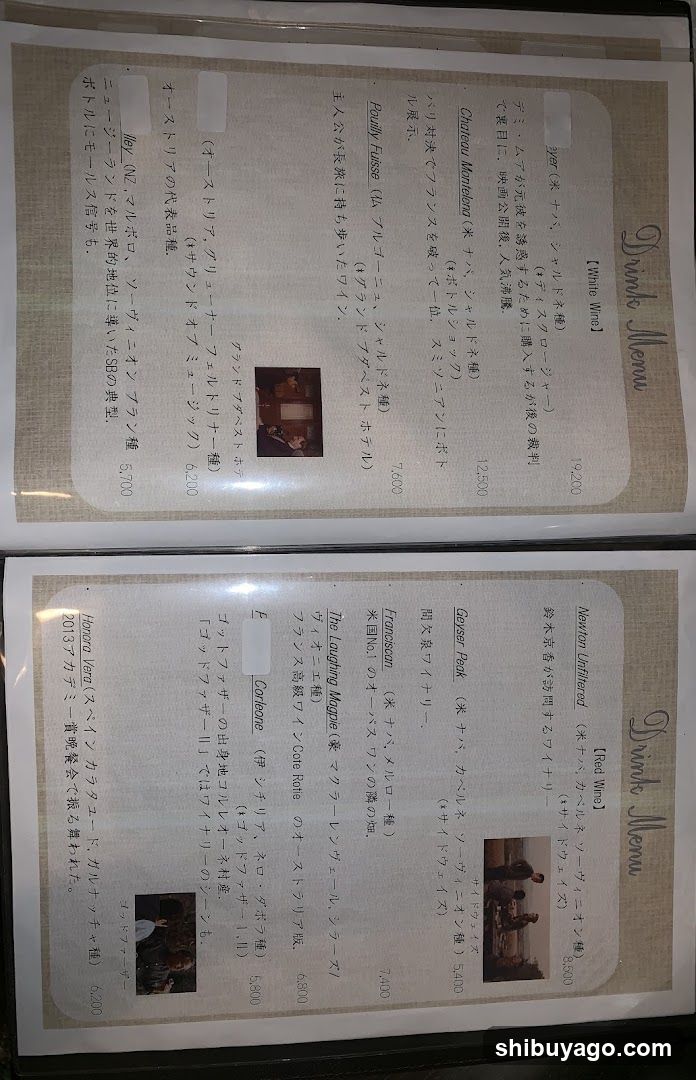 Drink Menu
【White Wine】
eyer (米 ナパ, シャルドネ種) 19,200
(*ディスクロージャー)
デミ・ムアが元彼を誘惑するために購入するが後の裁判
で裏目に. 映画公開後, 人気沸騰.
Chateau Montelena (米 ナパ, シャルドネ種) 12,500
(*ボトルショック)
パリ対決でフランスを破って一位. スミソニアンにボト
ル展示.
Pouilly Fuisse (仏 ブルゴーニュ, シャルドネ種) 7,600
(*グランド ブダペスト ホテル)
主人公が長旅に持ち歩いたワイン.
グランド ブダペスト ホテ
(オーストリア, グリューナー フェルトリナー種)
(*サウンド オブ ミュージック) 6,200
オーストリアの代表品種.
lley (NZ ,マルボロ、ソーヴィニオン ブラン種 5,700
ニュージーランドを世界的地位に導いたSBの典型.
ボトルにモールス信号も.
Drink Menu
【Red Wine】
Newton Unfiltered (米 ナパ, カベルネ ソーヴィニオン種) 8,500
(*サイドウェイズ)
鈴木京香が訪問するワイナリー
サイドウェイズ
Geyser Peak (米 ナパ, カベルネ ソーヴィニオン種) 5,400
(*サイドウェイズ)
間欠泉ワイナリー.
Franciscan (米 ナパ, メルロー種) 7,400
米国No,1 のオーパス ワンの隣の畑.
The Laughing Magpie (豪 マクラーレンヴェール, シラーズ/
ヴィオニエ種) 6,800
フランス高級ワインCote Rotie のオーストラリア版.
Corleone (伊 シチリア, ネロ・ダボラ種) 5,800
(*ゴッドファザー I,II)
ゴットファザーの出身地コルレオーネ村産.
「ゴッドファザーII」ではワイナリーのシーンも.
ゴッドファーザー
Honora Vera (スペイン カラタユード、ガルナッチャ種) 6,200
2013アカデミー賞晩餐会で振る舞われた。
shibuyago.com